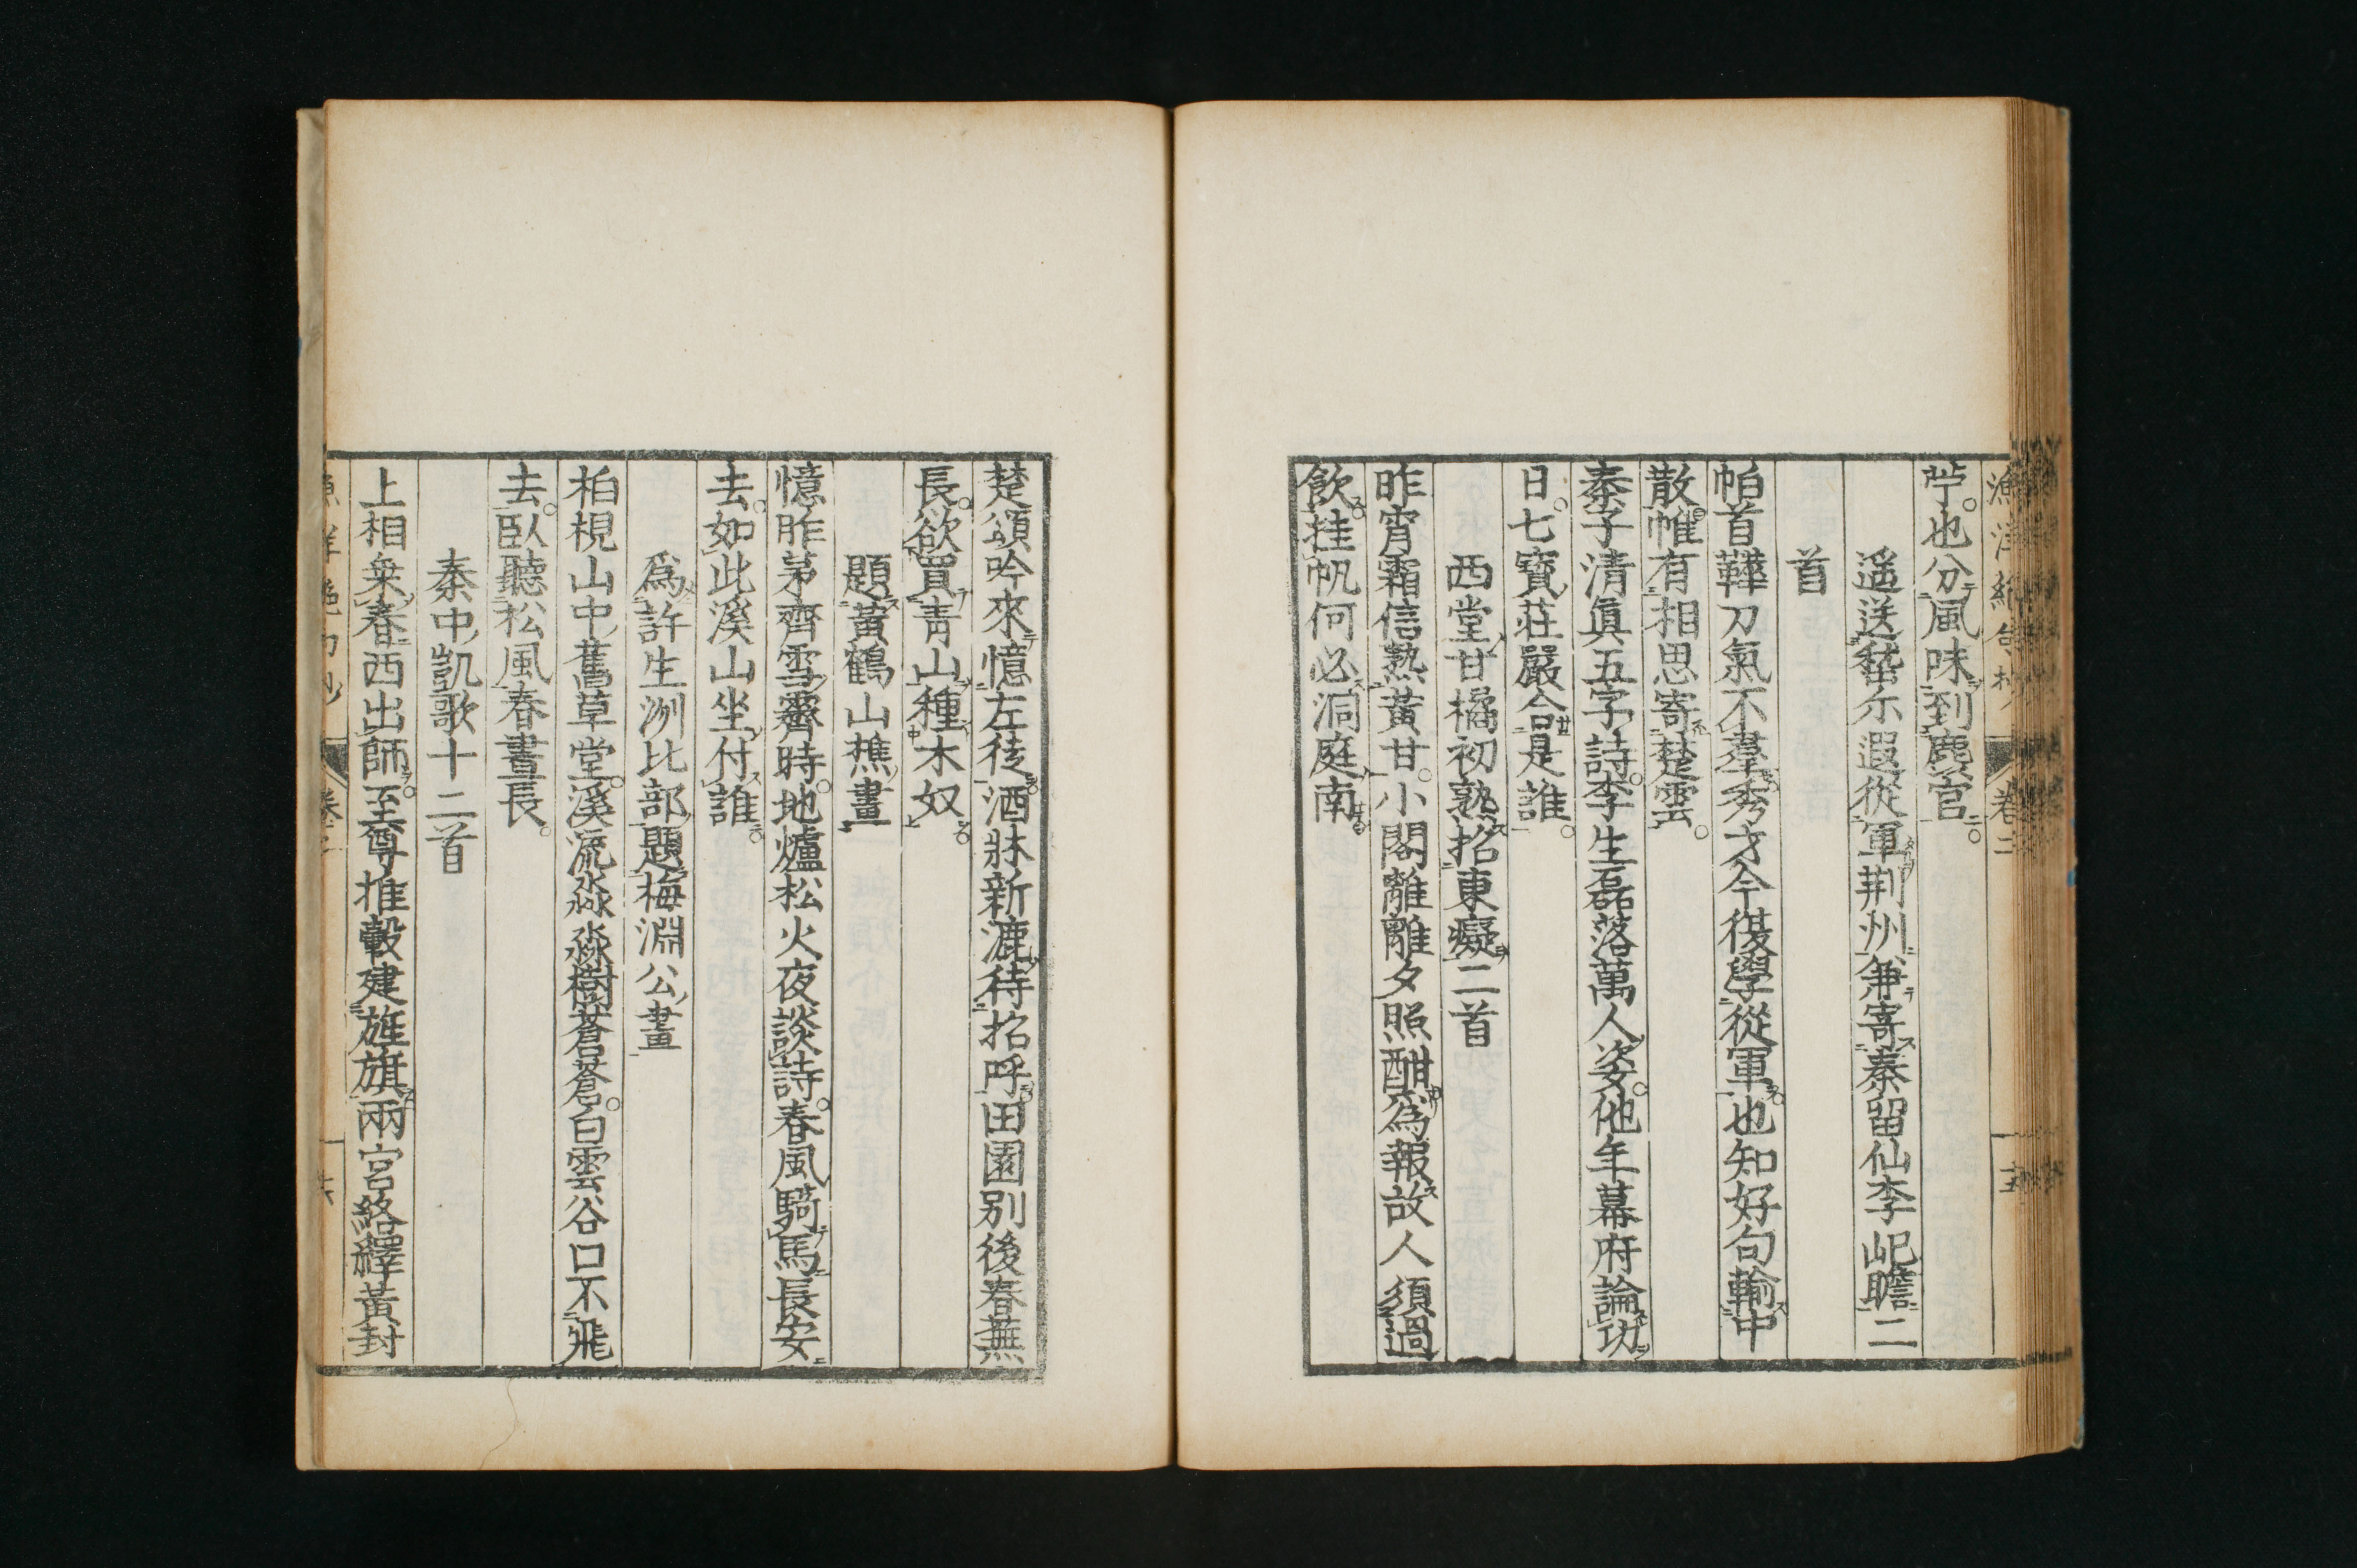 漁洋絶句抄 卷二
苧也分風味到麤官
遥送嵇尓遐從軍荆州兼寄秦留仙李屺瞻二
首
帕首鞾刀氣不羣秀才今復學從軍也知好句輸中
散帷有相思寄楚雲
秦子清眞五字詩李生磊落萬人姿他年幕府論功
日七寳莊嚴合是誰
西堂甘橘初熟招東癡二首
昨宵霜信熟黃甘小閣離離夕照酣為報故人須過
飲挂帆何必洞庭南
楚頌吟來憶左徒酒牀新漉待招呼田園别後春蕪
長欲買青山種木奴
題黃鶴山樵畫
憶昨茅齊雪霽時地爐松火夜談詩春風騎馬長安
去如此溪山坐付誰
爲許生洲比部題梅淵公畫
柏梘山中舊草堂溪流淼淼樹蒼蒼白雲谷口不飛
去臥聽松風春晝長
秦中凱歌十二首
上相乗春西出師至尊推轂建旌旗兩宮絡繹黃封